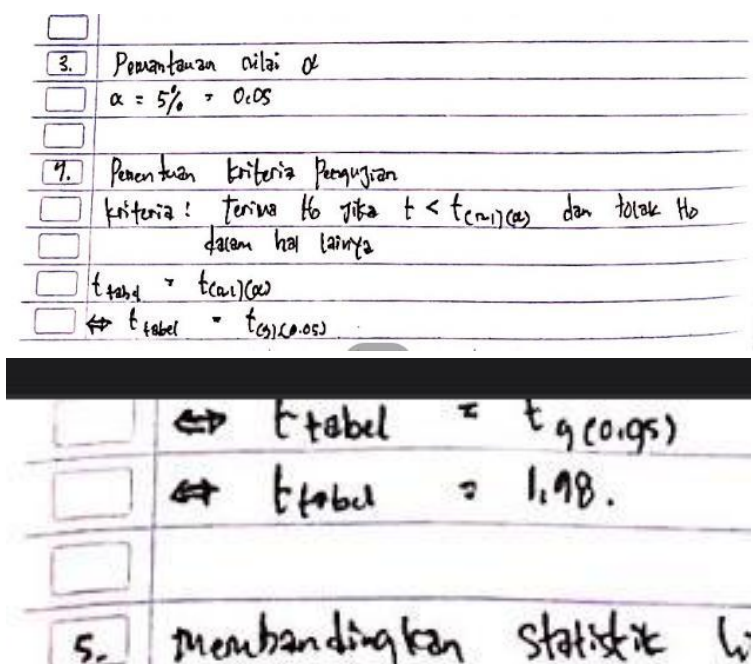 3. Pemantauan nilai α
α = 5% = 0.05
4. Penentuan kriteria Pengujian
kriteria : Terima Ho Jika t < t(n-1)(α) dan tolak Ho
dalam hal lainya
t tabel = t(n-1)(α)
⇔ t tabel = t(9)(0.05)
⇔ t tabel = t 9(0.95)
⇔ t tabel = 1,98.
5. Membandingkan statistik